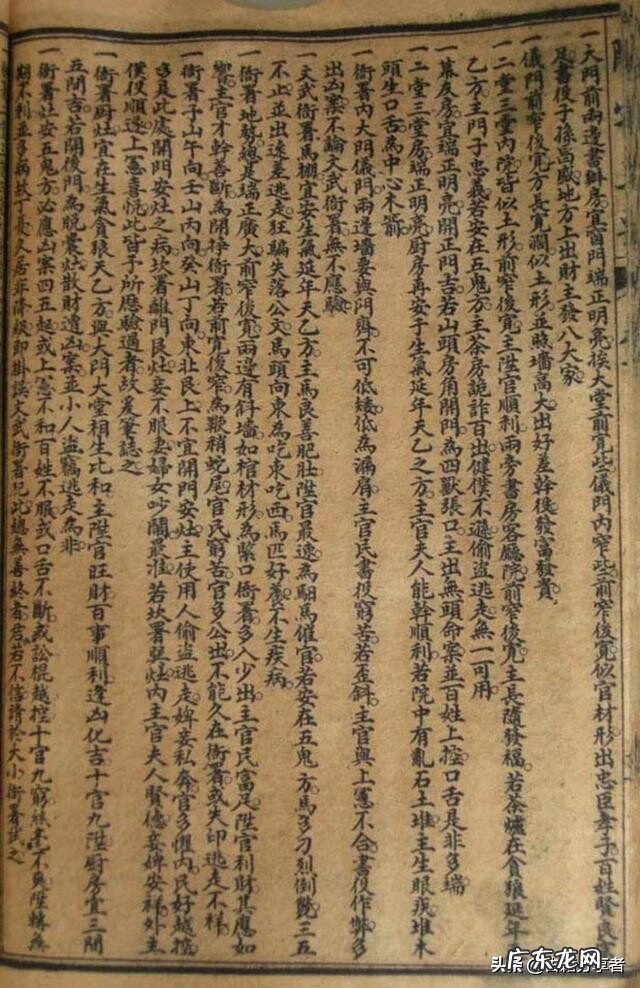 一大門前兩邊書辦房宜窗門端正明亮後大堂前寬些儀門內窄些前窄後寬似官材形出忠臣孝子百姓賢良官
足書役子孫高盛地方上出財主發八大家
一儀門前窄後寬方長寬濶似土形並照墻高大出好差幹後發富發貴
一二堂三堂內院皆似土形前窄後寬主陞官順利兩旁書房客廳院前窄後寬主長隨發福若茶爐在貪狼延年
乙方主門子忠義若安在五鬼方主茶房詭詐百出健僕不遜偷盜逃走無一可用
一幕友房宜端正明亮開正門吉若山頭房角開門為四獸張口主出無頭命案並百姓上控口舌是非多端
一二堂三堂房端正明亮廚房再安于生氣延年天乙之方主官夫人能幹順利若院中有亂石土堆主生眼疾堆木
頭生口舌為中心木箭
一衙署內大門儀門兩邊墻要與門齊不可低矮低為漏肩主官民書役窮苦若歪斜主官與上憲不合書役作弊多
出凶案不論文武衙署無不應驗
一文武衙署馬棚宜安生氣延年天乙方主馬良善肥壯陞官最速為馹馬催官若安在五鬼方馬多刁烈倒斃三五
不止並出遠差逃走狂騙失落公文馬頭向東為吃東吃西馬匹好養不生疾病
一衙署地勢總是端正廣大前窄後寬兩邊有斜墻如棺材形為緊口衙署多入少出主官民富足陞官利財其應如
響主官才幹善斷為開挣衙署若前寬後窄為鞭稍蛇尾官民窮苦官多公出不能久在衙署或失印逃走不祥
一衙署子山午向壬山丙向癸山丁向東北艮上不宜開門安灶主使用人偷盜逃走婢妾私奔官多懼內民好越控
多見此處開門安灶之病坎署離門艮灶妾不服妻婦女吵鬧最准若坎署巽灶內主官夫人賢德妾婢安祥外主
僕役順遜上憲喜悅此皆予所應驗過者故爰筆誌之
一衙署厨灶宜在生氣貪狼天乙方與大門大堂相生比和主陞官旺財百事順利逢凶化吉十官九陞厨房宜三間
五間吉若開後門為脫囊灶散財遭凶案並小人盜竊逃走為非
一衙署灶安五鬼方必應凶案四五起或上憲不和百姓不服或口舌不斷或訟棍越控十官九窮不與陞轉為
期不利並多病故丁憂久居非降級即掛誤文武衙署犯此總無善終者君若不信請於大小衙署試之
头条
广东龙网
者